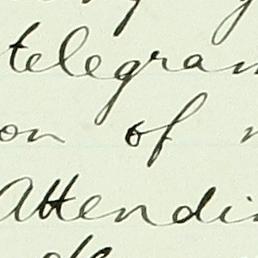 telegram
on of
Attendi